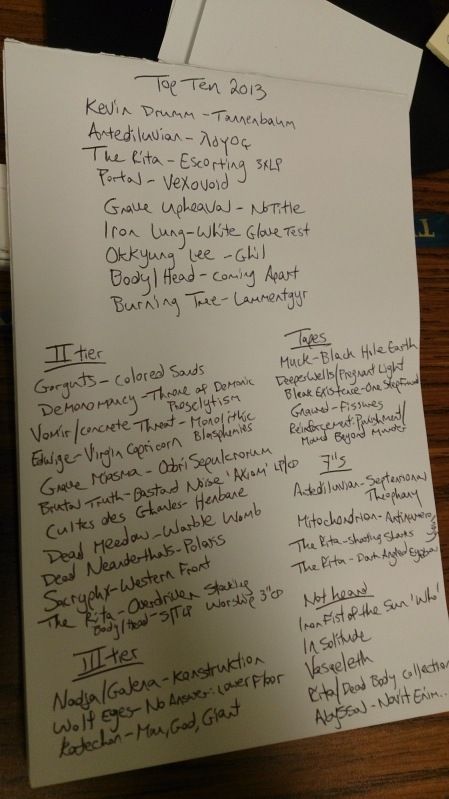 Top Ten 2013
Kevin Drumm - Tannenbaum
Antediluvian - λόγος
The Rita - Escorting 3xLP
Portal - Vexovoid
Grave Upheaval - No Title
Iron Lung - White Glove Test
Okkyung Lee - Ghil
Body/Head - Coming Apart
Burning Tree - Lammentgyr
II tier
Gorguts - Colored Sands
Demonomancy - Throne of Demonic
Proselytism
Vomir/Concrete Threat - Monolithic
Blasphemies
Edwige - Virgin Capricorn
Grave Miasma - Odori Sepulcrorum
Brutal Truth - Bastard Noise 'Axiom' LP/CD
Cultes des Ghoules - Henbane
Dead Meadow - Warble Womb
Dead Neanderthals - Polaris
Sacryphx - Western Front
The Rita - Overdriven Stocking
Worship 3"CD
Body/Head - S/T LP
III tier
Nadja/Galena - Konstruktion
Wolf Eyes - No Answer: Lower Floor
Katechon - Man, God, Giant
Tapes
Muck - Black Hole Earth
Deeper Wells/Pregnant Light
Bleak Existence - One Step
Ground - Fissures
Reinforcement: Punishment/
Mind Beyond Murder
7"s
Antediluvian - Septentrional
Theophany
Mitochondrion - Antinumerology
The Rita - Shooting Sharks
The Rita - Dark Angled Egyptian
Not heard
Iron Fist of the Sun 'Who'
In Solitude
Vasaeleth
Rita/Dead Body Collection
Abyssal - Novit Enim..